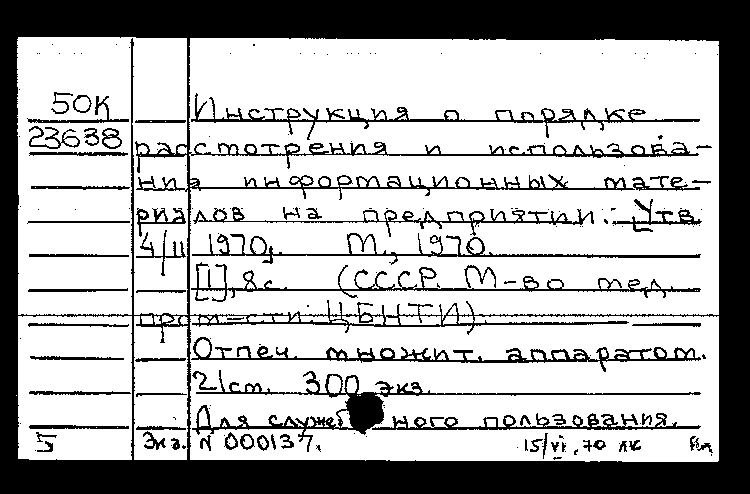 50К Инструкция о порядке
23638 рассмотрения и использова-
ния информационных мате-
риалов на предприятии. Утв.
4/II 1970г. М., 1970.
[1], 8с. (СССР. М-во мед.
пром-сти. ЦБНТИ).
Отпеч. множит. аппаратом.
21см. 300 экз.
Для служебного пользования.
5 Экз. N 000137. 15/VI.70 лк